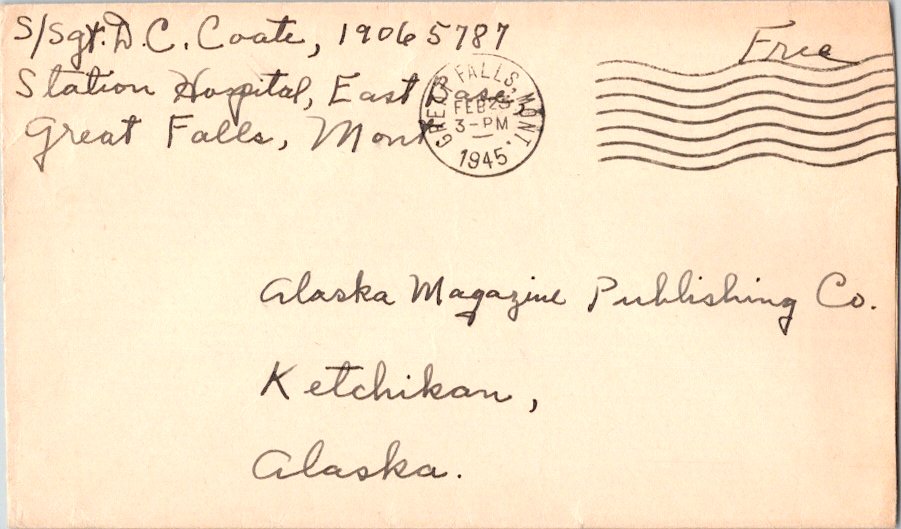 S/Sgt. D. C. Coate, 19065787
Station Hospital, East Base,
Great Falls, Mont
Free
GREAT FALLS, MONT.
FEB 23
3-PM
1945
Alaska Magazine Publishing Co.
Ketchikan,
Alaska.